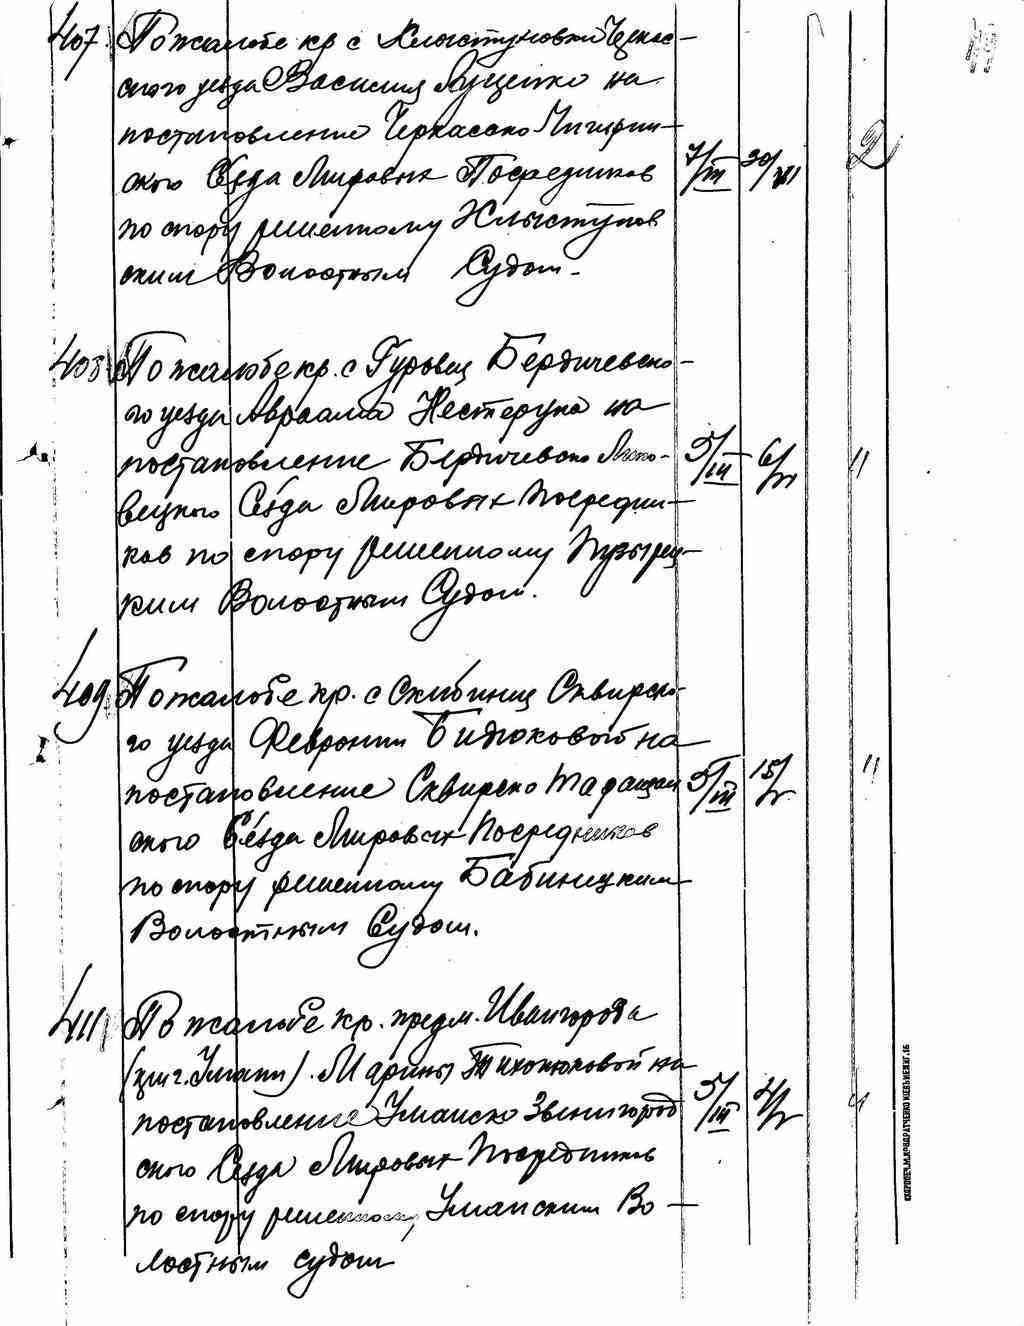 407. По жалобе кр с Хлыстуновки Черкас-
ского уезда Василия Луценко на
постановление Черкасско Чигирин-
ского Сезда Мировых Посредников 7/III 30/VII 2
по спору решенному Хлыстунов
ским Волостным Судом.
408 По жалобе кр. с Гуровец Бердичевско-
го уезда Авраама Нестерука на
постановление Бердичевско Липо- 5/III 6/VI "
вецкого Сезда Мировых Посредни-
ков по спору решенному Пузырец-
ким Волостным Судом.
409 По жалобе кр. с Скибинец Сквирско-
го уезда Февронии Бидюковой на
постановление Сквирско Таращан 5/III 15/V "
ского Сезда Мировых Посредников
по спору решенному Бабинецким
Волостным Судом.
411 По жалобе кр. предм. Ивангорода
(при г. Умани). Марины Тихонюковой на
постановление Уманско Звенигород 5/III 4/V "
ского Сезда Мировых Посредников
по спору решенному Уманским Во-
лостным судом